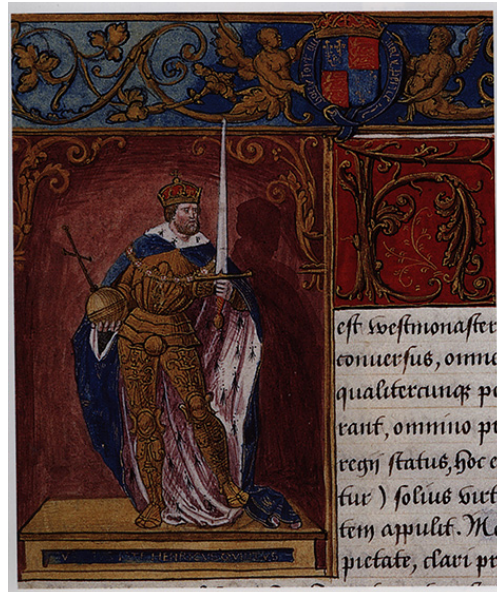 H
est westmonaster
conuersus, omne
qualitercunqꝫ po
rant, omnino pr
regij status, hoc e
tur ) solius virt
tem appulit. Mo
pietate, clari pr